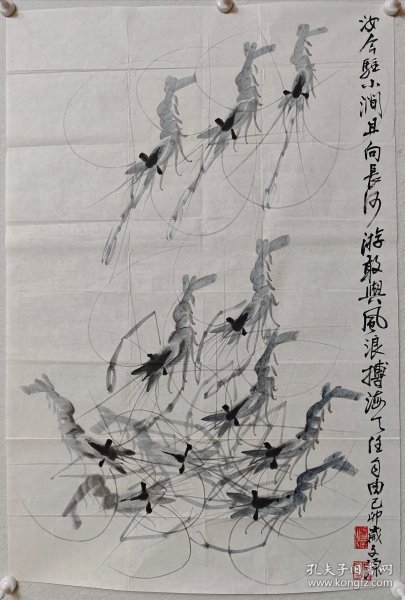 汝今驻小涧且向長河游敢與風浪搏海天任自由己卯歲文
孔夫子旧书网
www.kongfz.com